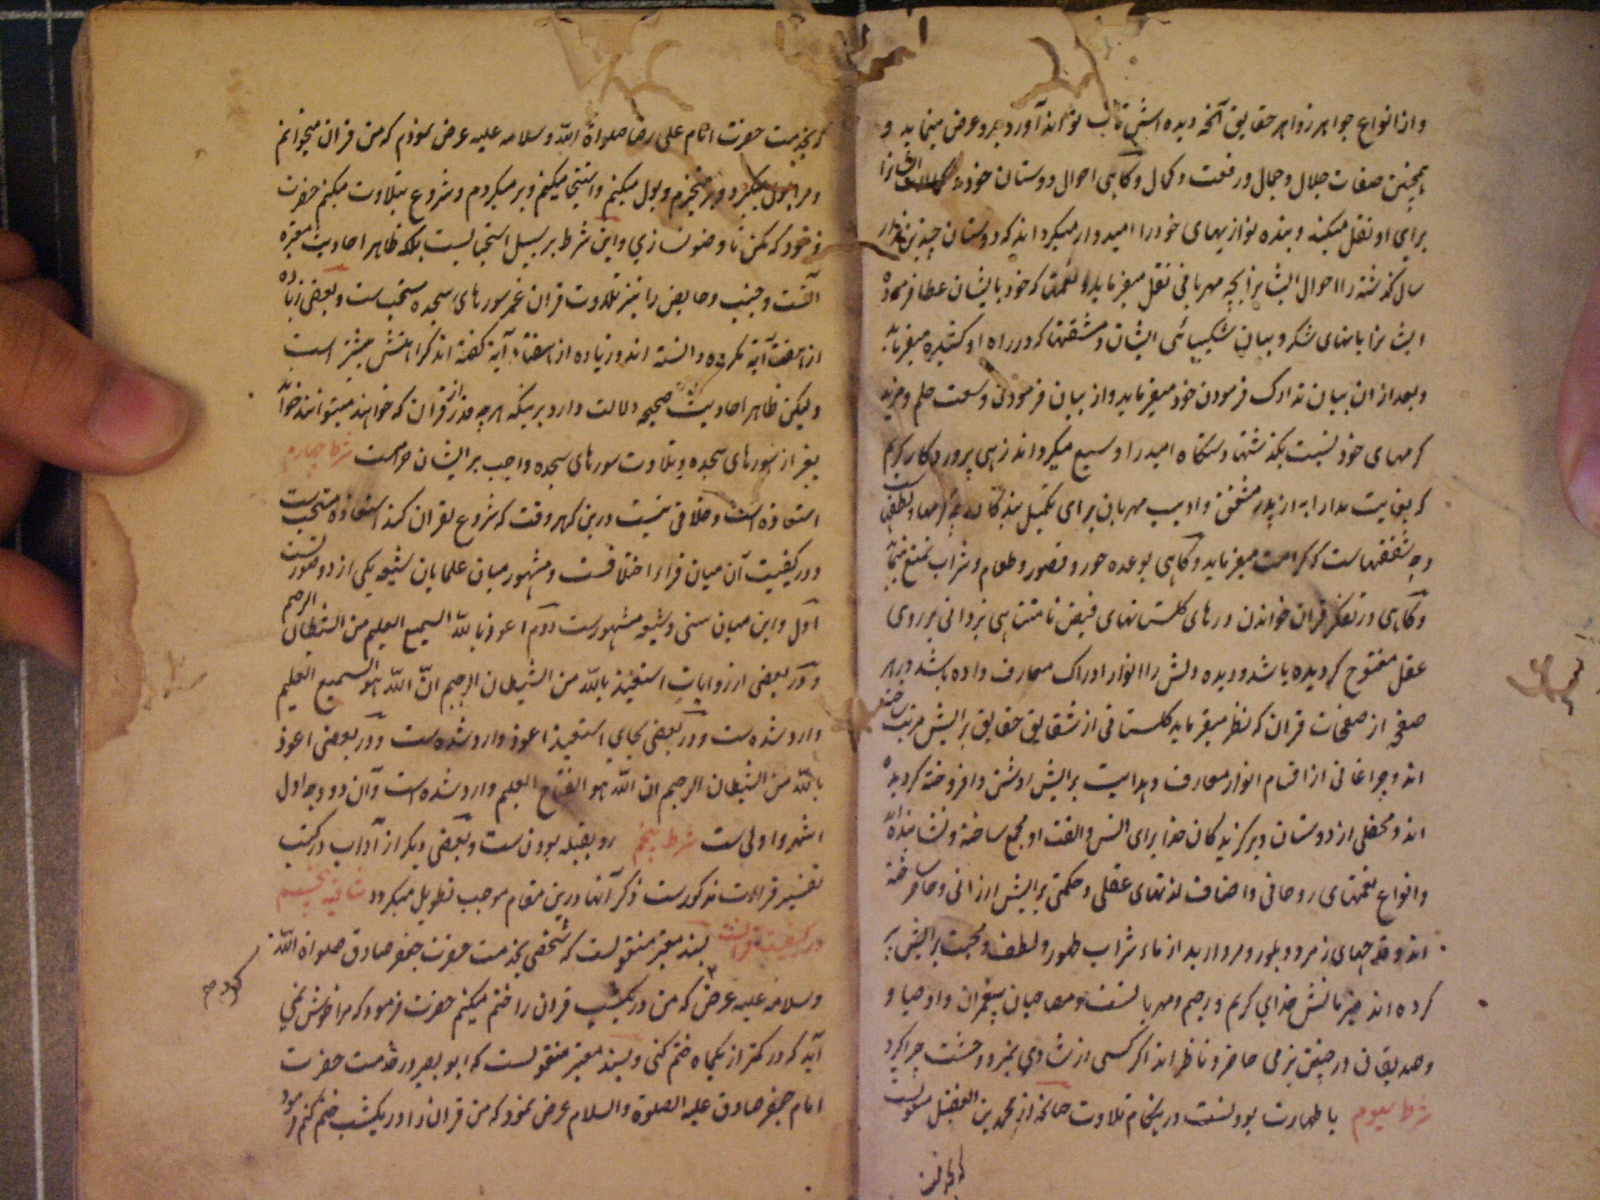 و از انواع جواهر زواهر حقایق آنچه دیده اش تاب تواند آورد برو عرض مینماید و
همچنین صفات جلال و جمال و رفعت و کمال و گاهی احوال دوستان خود
برای او نقل میکند و بنده نوازیهای خود را امیدوار میکرداند که دوستان چندین هزار
سال گذشته را احوال ایشانرا بچه مهربانی نقل میفرماید و نعمتها که خود بایشان عطا فرموده
ایشانرا بابنهای شکر و بیان شکیبائی ایشان و مشقتها که در راه او کشیده میفرماید
و بعد از ان بیان تدارک فرمودن خود میفرماید و از بیان فرمودن وسعت حلم و مزید
کرمهای خود نسبت بگذشتها دستگاه امید را وسیع میکرداند زهی پروردکار کریم
که بغایت مدارا به از پدر مشفق و ادیب مهربان برای تکمیل بندکان
و چه شفقتهاست که کرامت میفرماید و گاهی بوعده حور و قصور و طعام و شراب
و گاهی در تفکر قران خواندن درهای کلستانهای فیض نامتناهی یزدانی بر روی
عقل مفتوح کردیده باشد و دیده دلش را انوار ادراک معارف داده باشد در هر
صفحه از صفحات قران که نظر میفرماید کلستانی از شقایق حقایق برایش مرتب ساخته
اند و چراغانی از اقسام انوار معارف و هدایت برایش روشن و افروخته کردیده
اند و محفلی از دوستان و برکزیدکان خدا برای انس و الفت او جمع ساخته و نشانیده اند
و انواع نعمتهای روحانی و اصناف لذتهای عقلی و حکمتی برایش ارزانی و حاضر ساخته
اند و قدحهای زمرد و بلور و مروارید از ماء شراب طهور و لطف و محبت برایش پر
کرده اند میزبانش خدای کریم و رحیم و مهربانست و مصاحبان پیغمبران و اوصیا و
و صدیقان در چنین بزمی حاضر و ناظر اند اگر کسی از شادی بمیرد و حشت چرا کرد
شرط سیوم با طهارت بودنست در هنکام تلاوت چنانچه از محمد بن الفضل منقولست
که گفت
که بخدمت حضرت امام علی رضا صلواة الله و سلامه علیه عرض نمودم که من قران میخوانم
و مرا بول میکیرد و برمیخیزم و بول میکنم و استنجا میکنم و برمیکردم و شروع بتلاوت میکنم حضرت
فرمود که مکن تا وضو نسازی و این شرط بر سبیل استحبابست بلکه ظاهر احادیث معتبره
آنست و جنب و حایض را نیز تلاوت قران غیر سورهای سجده مستحب ست و بعضی زیاده
از هفت آیة مکروه دانسته اند و زیاده از هفتاد آیة کفته اند کراهتش بیشتر است
و لیکن ظاهر احادیث صحیحه دلالت دارد برینکه هر چه قدر از قران که خواهند میتوانند خواند
بغیر از سورهای سجده و تلاوت سورهای سجده واجب بر ایشان حرامست شرط چهارم
استعاذه است و خلافی نیست درین که هر وقت که شروع بقران کنند استعاذه مستحب ست
و در کیفیت آن میان قراء اختلافست و مشهور میان علمایان شیعه یکی از دو صورتست
اول و این میان سنی و شیعه مشهورست دوم اعوذ بالله السمیع العلیم من الشیطان الرجیم
و در بعضی از روایات استعیذ بالله من الشیطان الرجیم ان الله هو السمیع العلیم
وارد شده ست و در بعضی بجای استعیذ اعوذ وارد شده ست و در بعضی اعوذ
بالله من الشیطان الرجیم ان الله هو الفتاح العلیم وارد شده است و آن دو وجه اول
اشهر و اولی ست شرط پنجم رو بقبله بودن ست و بعضی دیکر از آداب در کتب
تفسیر قراات مذکورست ذکر آنها درین مقام موجب تطویل میکردد
در کیفیت قرائت بسند معتبر منقولست که شخصی بخدمت حضرت جعفر صادق صلواة الله
و سلامه علیه عرض که من در یکشب قران را ختم میکنم حضرت فرمود که مرا خوش نمی
آید که در کمتر از یکماه ختم کنی و بسند معتبر منقولست که ابو بصیر در خدمت حضرت
امام جعفر صادق علیه الصلوة و السلام عرض نمود که من قران را در یکشب ختم کنم فرمود
کرد م